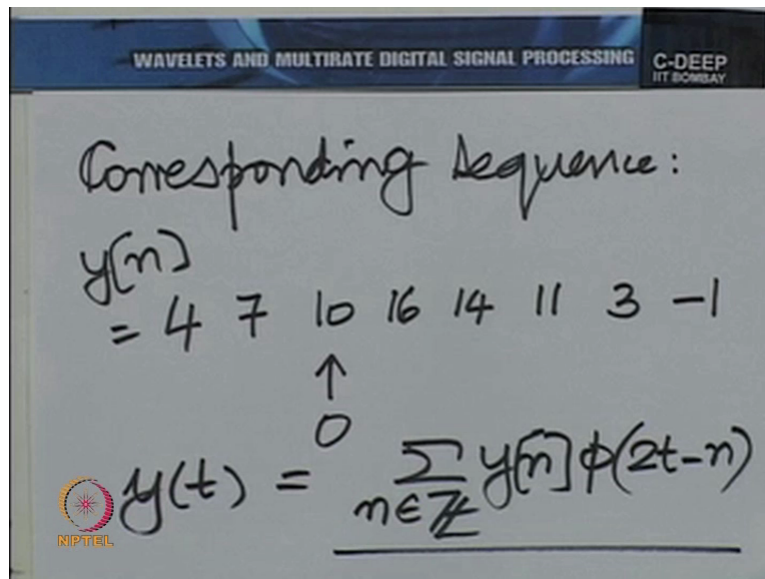 WAVELETS AND MULTIRATE DIGITAL SIGNAL PROCESSING
C-DEEP
IIT BOMBAY
Corresponding Sequence:
y[n]
= 4 7 10 16 14 11 3 -1
↑
0
y(t) = ∑ y[n] ϕ(2t-n)
n∈ℤ
NPTEL